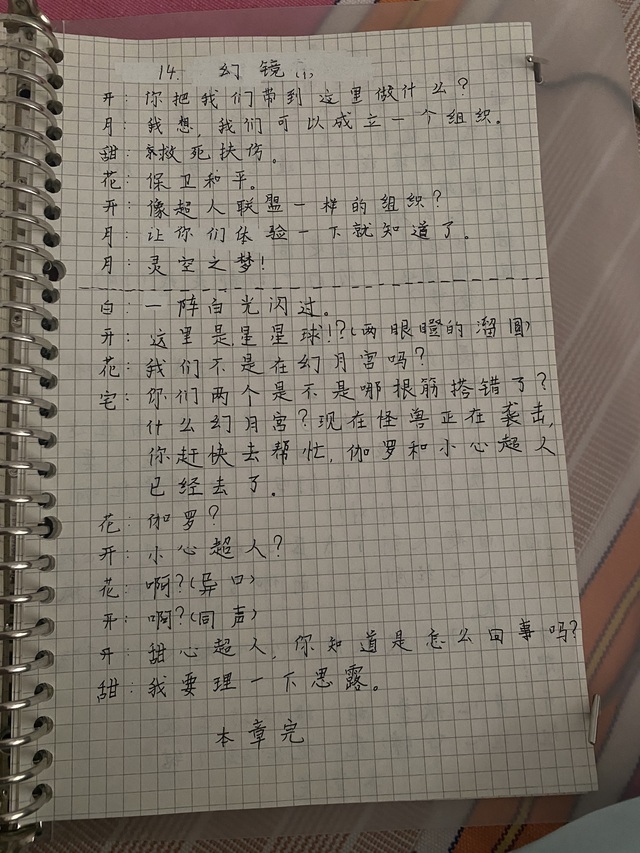 14. 幻镜(1)
开：你把我们带到这里做什么？
月：我想，我们可以成立一个组织。
甜：救死扶伤。
花：保卫和平。
开：像超人联盟一样的组织？
月：让你们体验一下就知道了。
月：灵空之梦！
白：一阵白光闪过。
开：这里是星星球!?(两眼瞪的溜圆)
花：我们不是在幻月宫吗？
宅：你们两个是不是哪根筋搭错了？
什么幻月宫？现在怪兽正在袭击，
你赶快去帮忙，伽罗和小心超人
已经去了。
花：伽罗？
开：小心超人？
花：啊?(异口)
开：啊?(同声)
开：甜心超人，你知道是怎么回事吗?
甜：我要理一下思露。
本章完